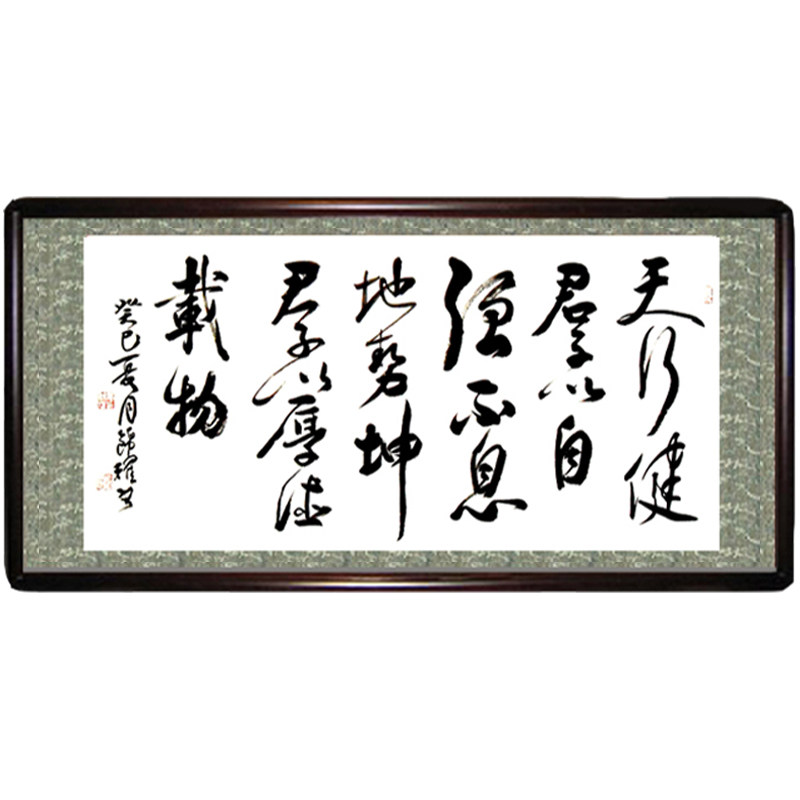 天行健
君子以自
强不息
地势坤
君子以厚德
載物
癸巳夏月